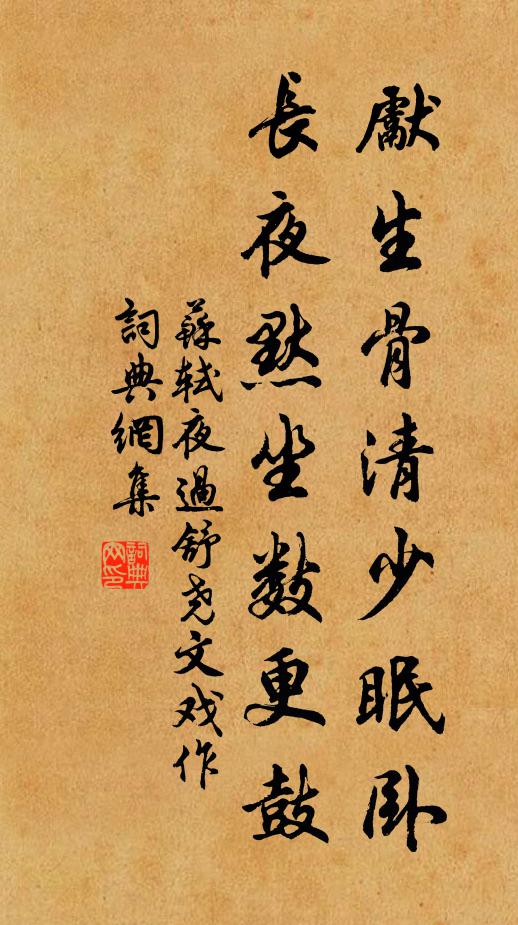 獻生骨清少眠卧
長夜黙坐數更鼓
蘇軾夜過舒尧文戏作
詞典網集
詞典网印